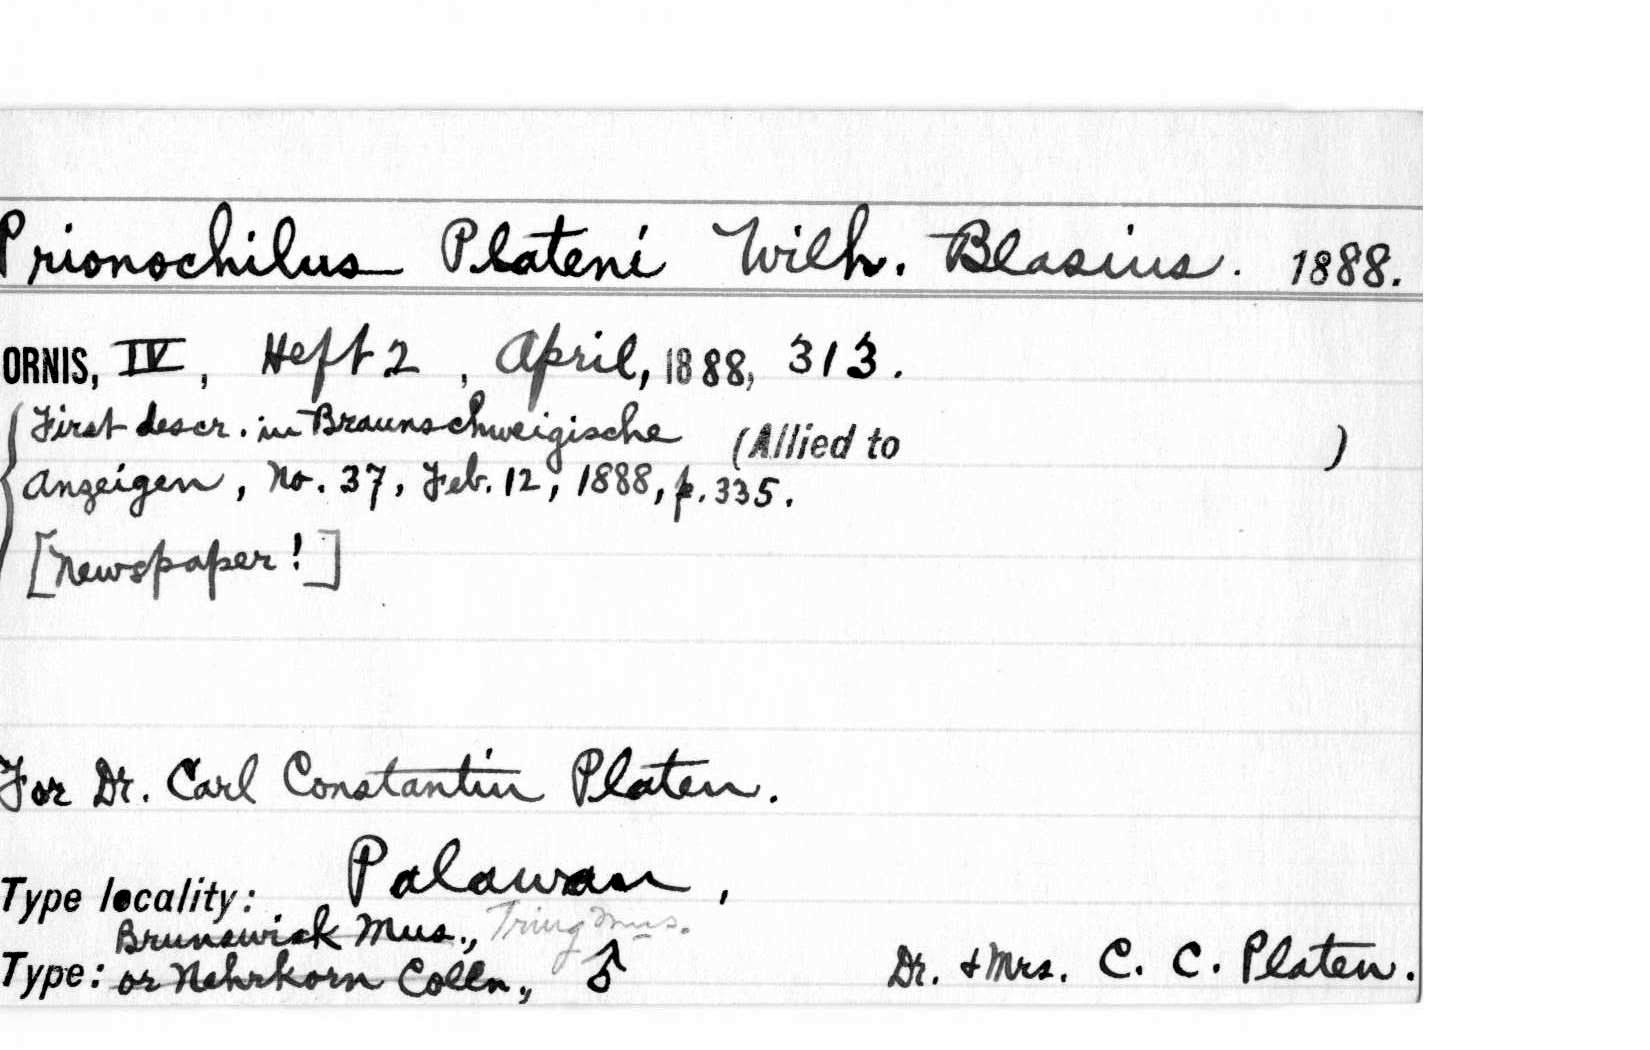 Prionochilus Plateni Wilh. Blasius. 1888.
ORNIS, IV, Heft 2, April, 1888, 313.
First descr. in Braunschweigische (Allied to )
Anzeigen, No. 37, Feb. 12, 1888, p. 335.
[Newspaper!]
For Dr. Carl Constantin Platen.
Type locality: Palawan,
Brunswick Mus., Tring Mus.
Type: or Nehrkorn Colln., ♂ Dr. & Mrs. C. C. Platen.